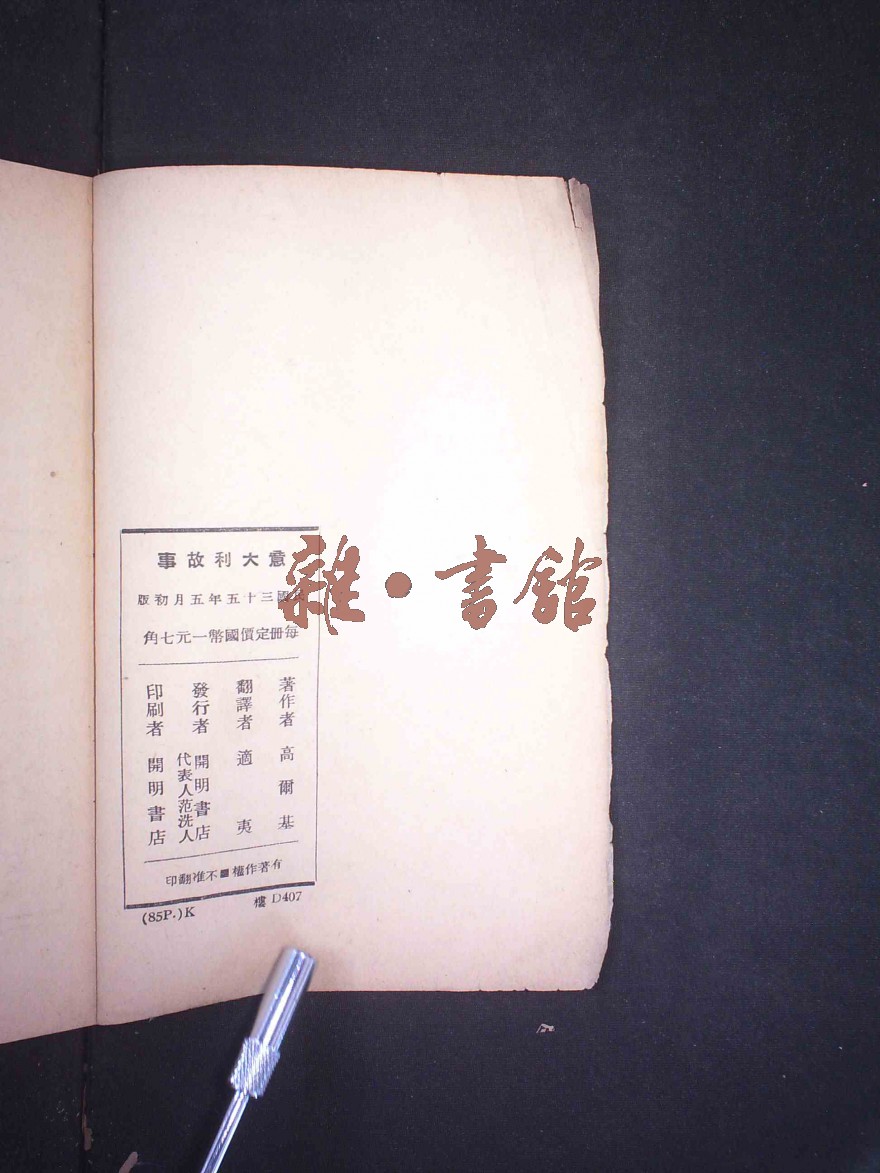 意大利故事
民國三十五年五月初版
每冊定價國幣一元七角
著作者 高爾基
翻譯者 適夷
發行者 開明書店
代表人范洗人
印刷者 開明書店
有著作權■不准翻印
(85P.)K 樓 D407
雜·書館